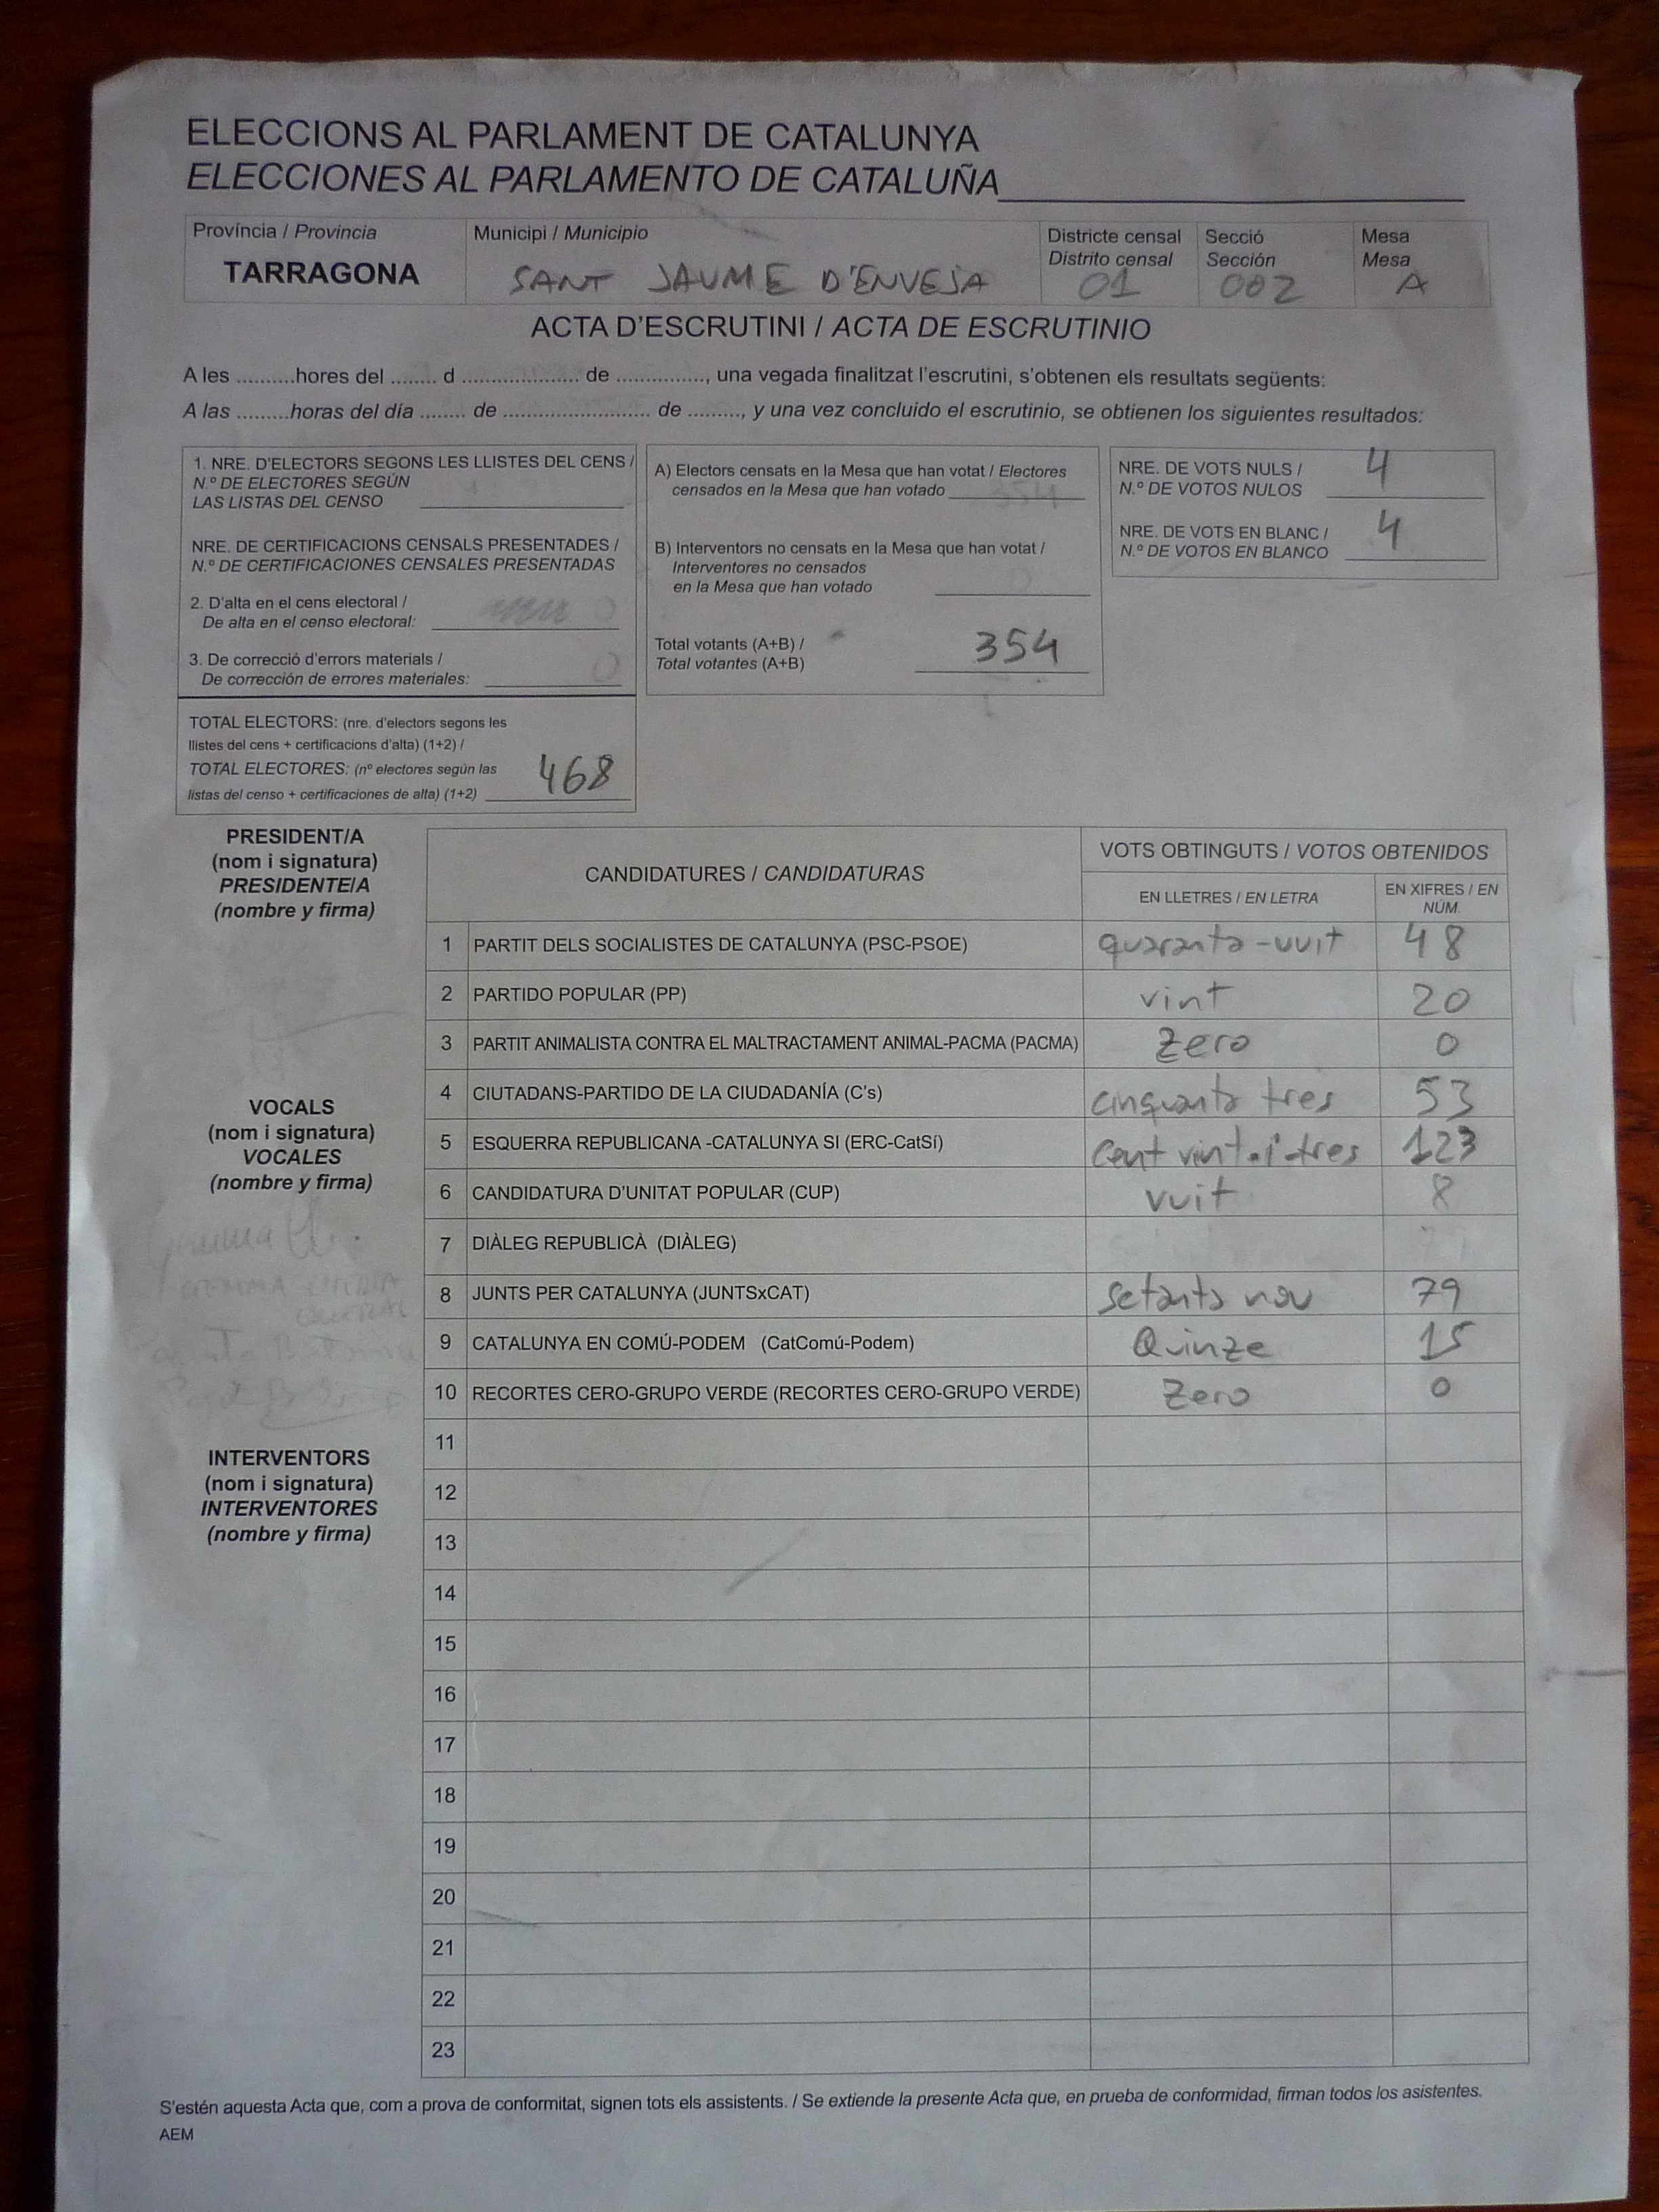 ELECCIONS AL PARLAMENT DE CATALUNYA
ELECCIONES AL PARLAMENTO DE CATALUÑA
Província / Provincia
TARRAGONA
Municipi / Municipio
SANT JAUME D'ENVEJA
Districte censal
Distrito censal
01
Secció
Sección
002
Mesa
Mesa
A
ACTA D'ESCRUTINI / ACTA DE ESCRUTINIO
A les ..........hores del ........ d .................... de ..............., una vegada finalitzat l'escrutini, s'obtenen els resultats següents:
A las .........horas del día ........ de ......................... de ........., y una vez concluido el escrutinio, se obtienen los siguientes resultados:
1. NRE. D'ELECTORS SEGONS LES LLISTES DEL CENS /
N.º DE ELECTORES SEGÚN
LAS LISTAS DEL CENSO
NRE. DE CERTIFICACIONS CENSALS PRESENTADES /
N.º DE CERTIFICACIONES CENSALES PRESENTADAS
2. D'alta en el cens electoral /
De alta en el censo electoral: 0
3. De correcció d'errors materials /
De corrección de errores materiales: 0
TOTAL ELECTORS: (nre. d'electors segons les
llistes del cens + certificacions d'alta) (1+2) /
TOTAL ELECTORES: (nº electores según las
listas del censo + certificaciones de alta) (1+2) 468
A) Electors censats en la Mesa que han votat / Electores
censados en la Mesa que han votado 354
B) Interventors no censats en la Mesa que han votat /
Interventores no censados
en la Mesa que han votado 0
Total votants (A+B) /
Total votantes (A+B) 354
NRE. DE VOTS NULS /
N.º DE VOTOS NULOS 4
NRE. DE VOTS EN BLANC /
N.º DE VOTOS EN BLANCO 4
PRESIDENT/A
(nom i signatura)
PRESIDENTE/A
(nombre y firma)
VOCALS
(nom i signatura)
VOCALES
(nombre y firma)
GEMMA
INTERVENTORS
(nom i signatura)
INTERVENTORES
(nombre y firma)
CANDIDATURES / CANDIDATURAS
VOTS OBTINGUTS / VOTOS OBTENIDOS
EN LLETRES / EN LETRA
EN XIFRES / EN
NÚM.
1 PARTIT DELS SOCIALISTES DE CATALUNYA (PSC-PSOE) quaranta-vuit 48
2 PARTIDO POPULAR (PP) vint 20
3 PARTIT ANIMALISTA CONTRA EL MALTRACTAMENT ANIMAL-PACMA (PACMA) Zero 0
4 CIUTADANS-PARTIDO DE LA CIUDADANÍA (C's) cinquanta tres 53
5 ESQUERRA REPUBLICANA -CATALUNYA SI (ERC-CatSí) Cent vint.i tres 123
6 CANDIDATURA D'UNITAT POPULAR (CUP) vuit 8
7 DIÀLEG REPUBLICÀ (DIÀLEG)
8 JUNTS PER CATALUNYA (JUNTSxCAT) setanta nou 79
9 CATALUNYA EN COMÚ-PODEM (CatComú-Podem) Quinze 15
10 RECORTES CERO-GRUPO VERDE (RECORTES CERO-GRUPO VERDE) Zero 0
11
12
13
14
15
16
17
18
19
20
21
22
23
S'estén aquesta Acta que, com a prova de conformitat, signen tots els assistents. / Se extiende la presente Acta que, en prueba de conformidad, firman todos los asistentes.
AEM